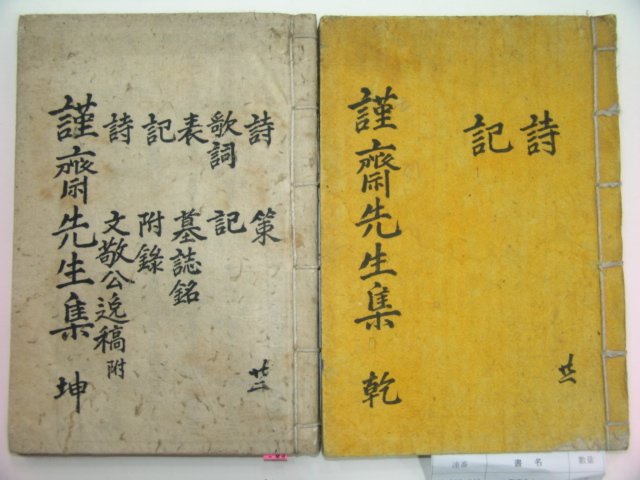 詩
記
謹齋先生集 乾
詩 策
歌詞 記
表 墓誌銘
記 附錄
詩 文敬公逸稿 附
謹齋先生集 坤
書名 數量